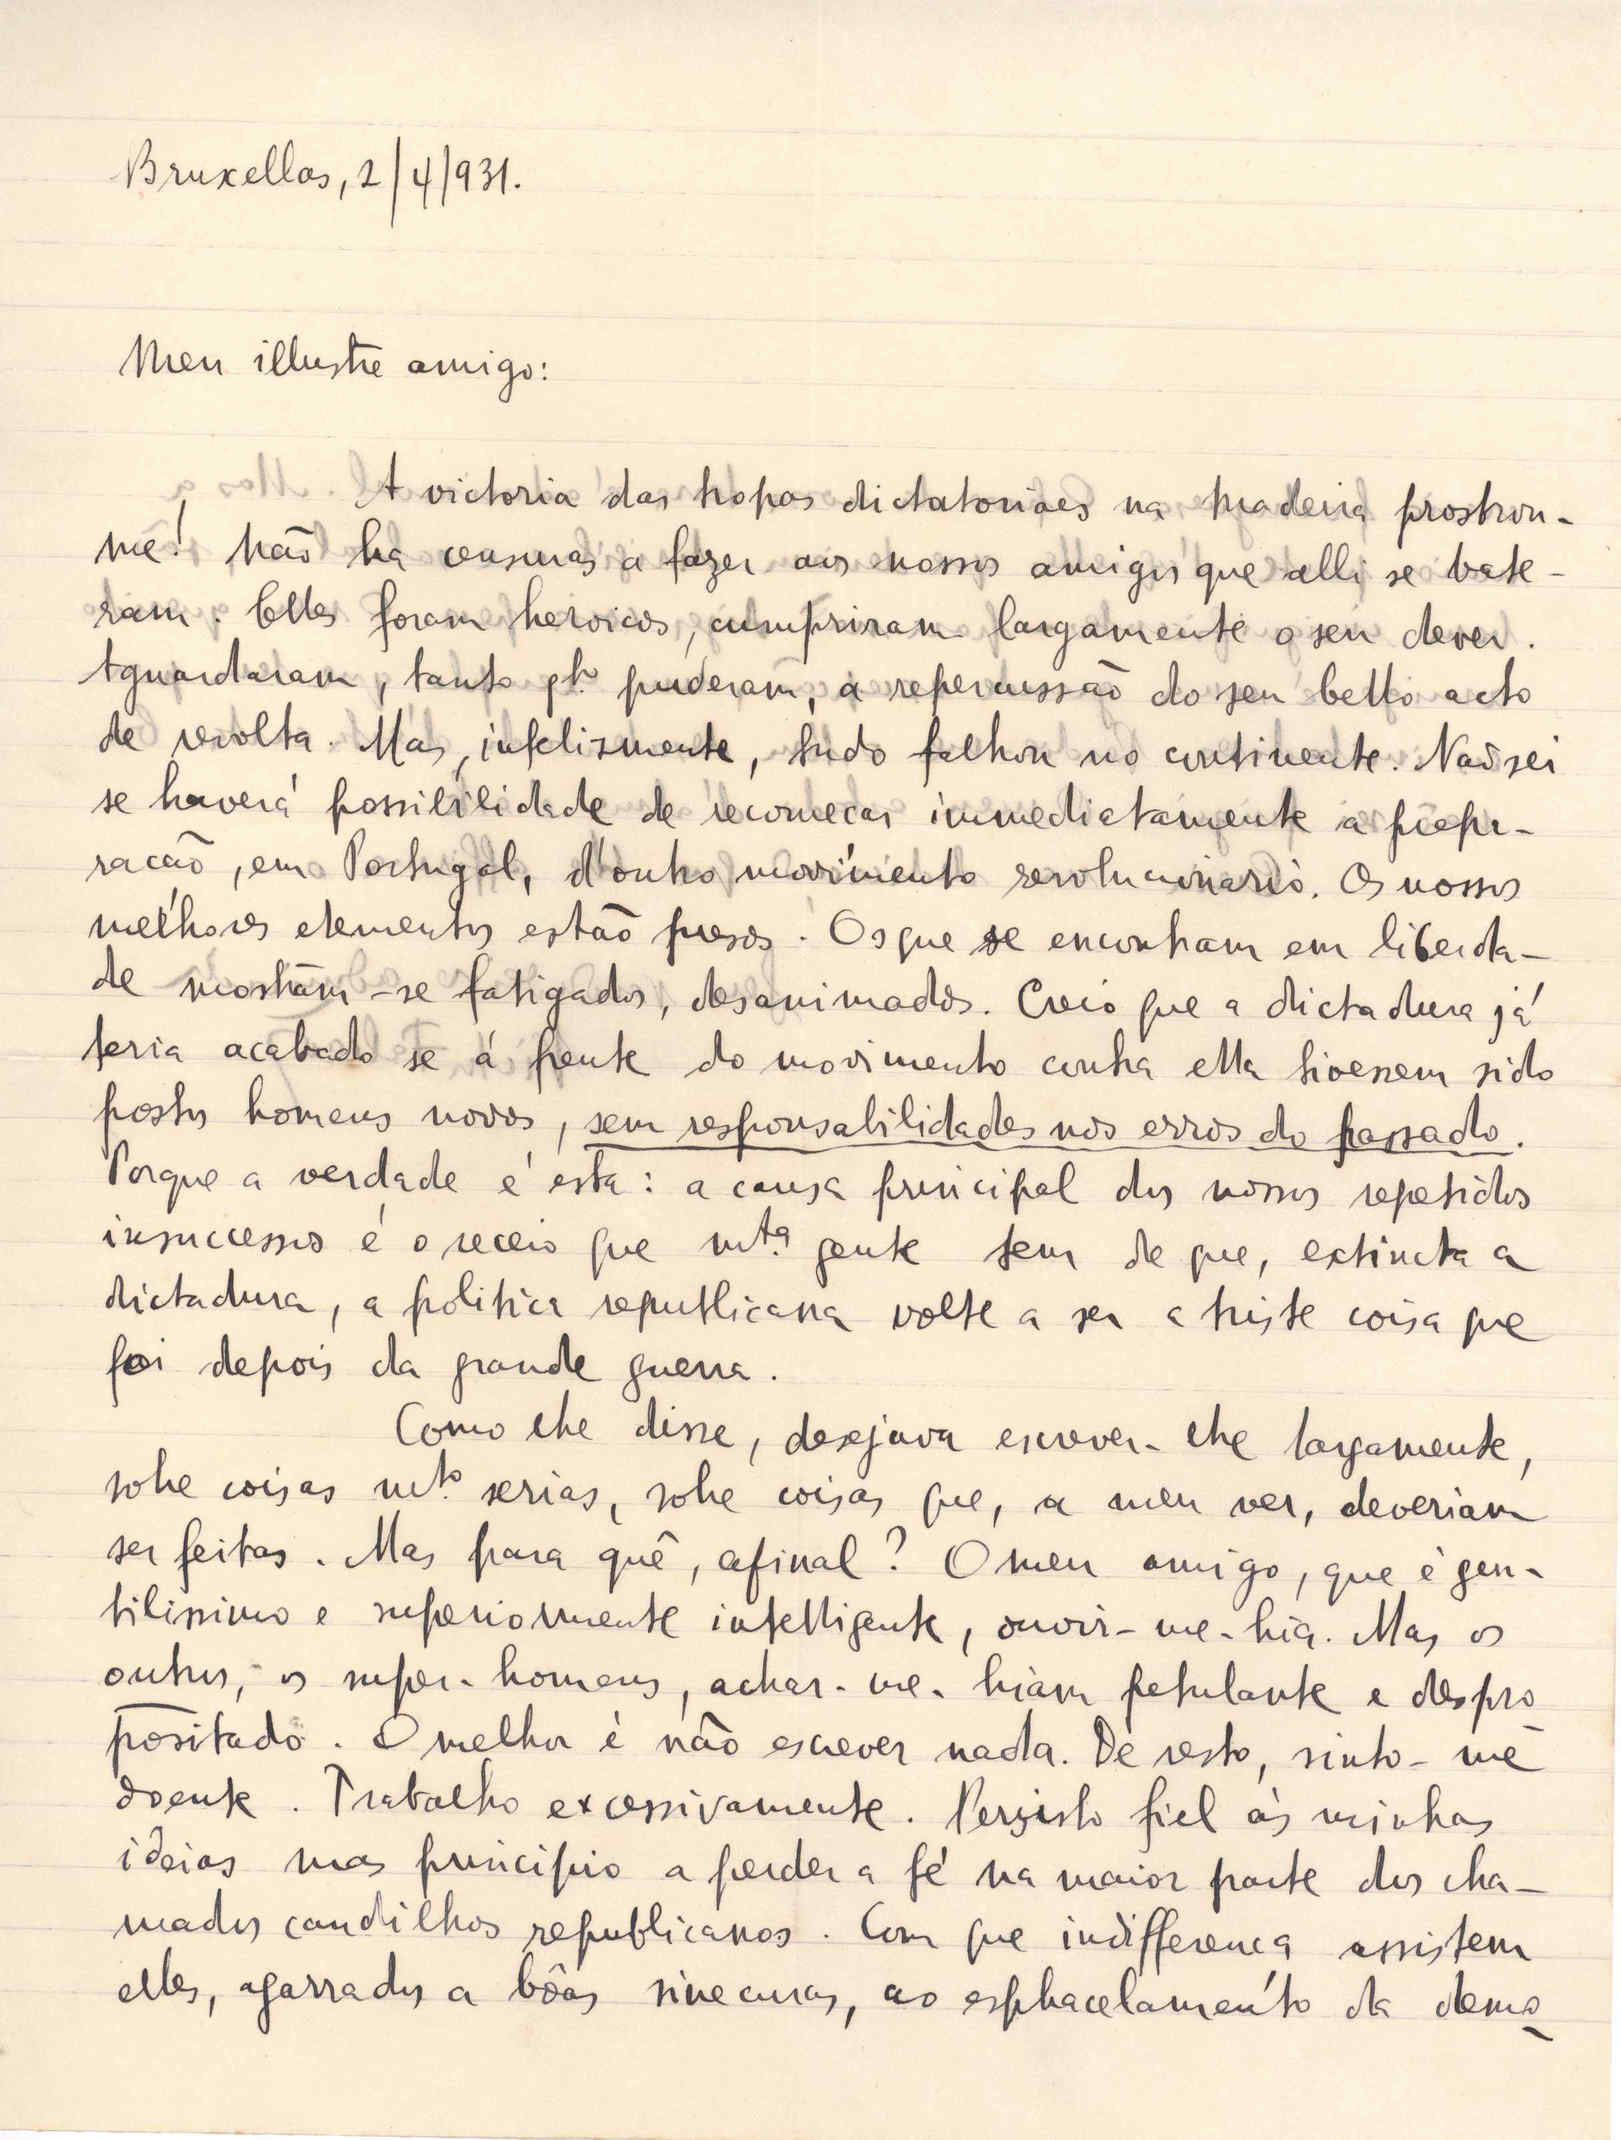 Bruxellas, 2/4/931.
Meu illustre amigo:
A victoria das tropas dictatoriaes na Madeira prostrou-
me! Não ha censuras a fazer aos nossos amigos que alli se bate-
ram. Elles foram heroicos, cumpriram largamente o seu dever.
Aguardaram, tanto qto. puderam, a repercussão do seu bello acto
de revolta. Mas, infelizmente, tudo falhou no continente. Não sei
se haverá possibilidade de recomeçar immediatamente a prepa-
ração, em Portugal, d'outro movimento revolucionario. Os nossos
melhores elementos estão presos. Os que se encontram em liberda-
de mostram-se fatigados, desanimados. Creio que a dictadura já
teria acabado se á frente do movimento contra ella tivessem sido
postos homens novos, sem responsabilidades nos erros do passado.
Porque a verdade é esta: a causa principal dos nossos repetidos
insuccessos é o receio que mta. gente tem de que, extincta a
dictadura, a politica republicana volte a ser a triste coisa que
foi depois da grande guerra.
Como lhe disse, desejava escrever-lhe largamente,
sobre coisas mto. serias, sobre coisas que, a meu ver, deveriam
ser feitas. Mas para quê, afinal? O meu amigo, que é gen-
tilissimo e superiormente intelligente, ouvir-me-hia. Mas os
outros, os super-homens, achar-me-hiam petulante e despro-
positado. O melhor é não escrever nada. De resto, sinto-me
doente. Trabalho excessivamente. Persisto fiel ás minhas
ideias mas principio a perder a fé na maior parte dos cha-
mados caudilhos republicanos. Com que indifferença assistem
elles, agarrados a bôas sinecuras, ao esphacelamento da demo-